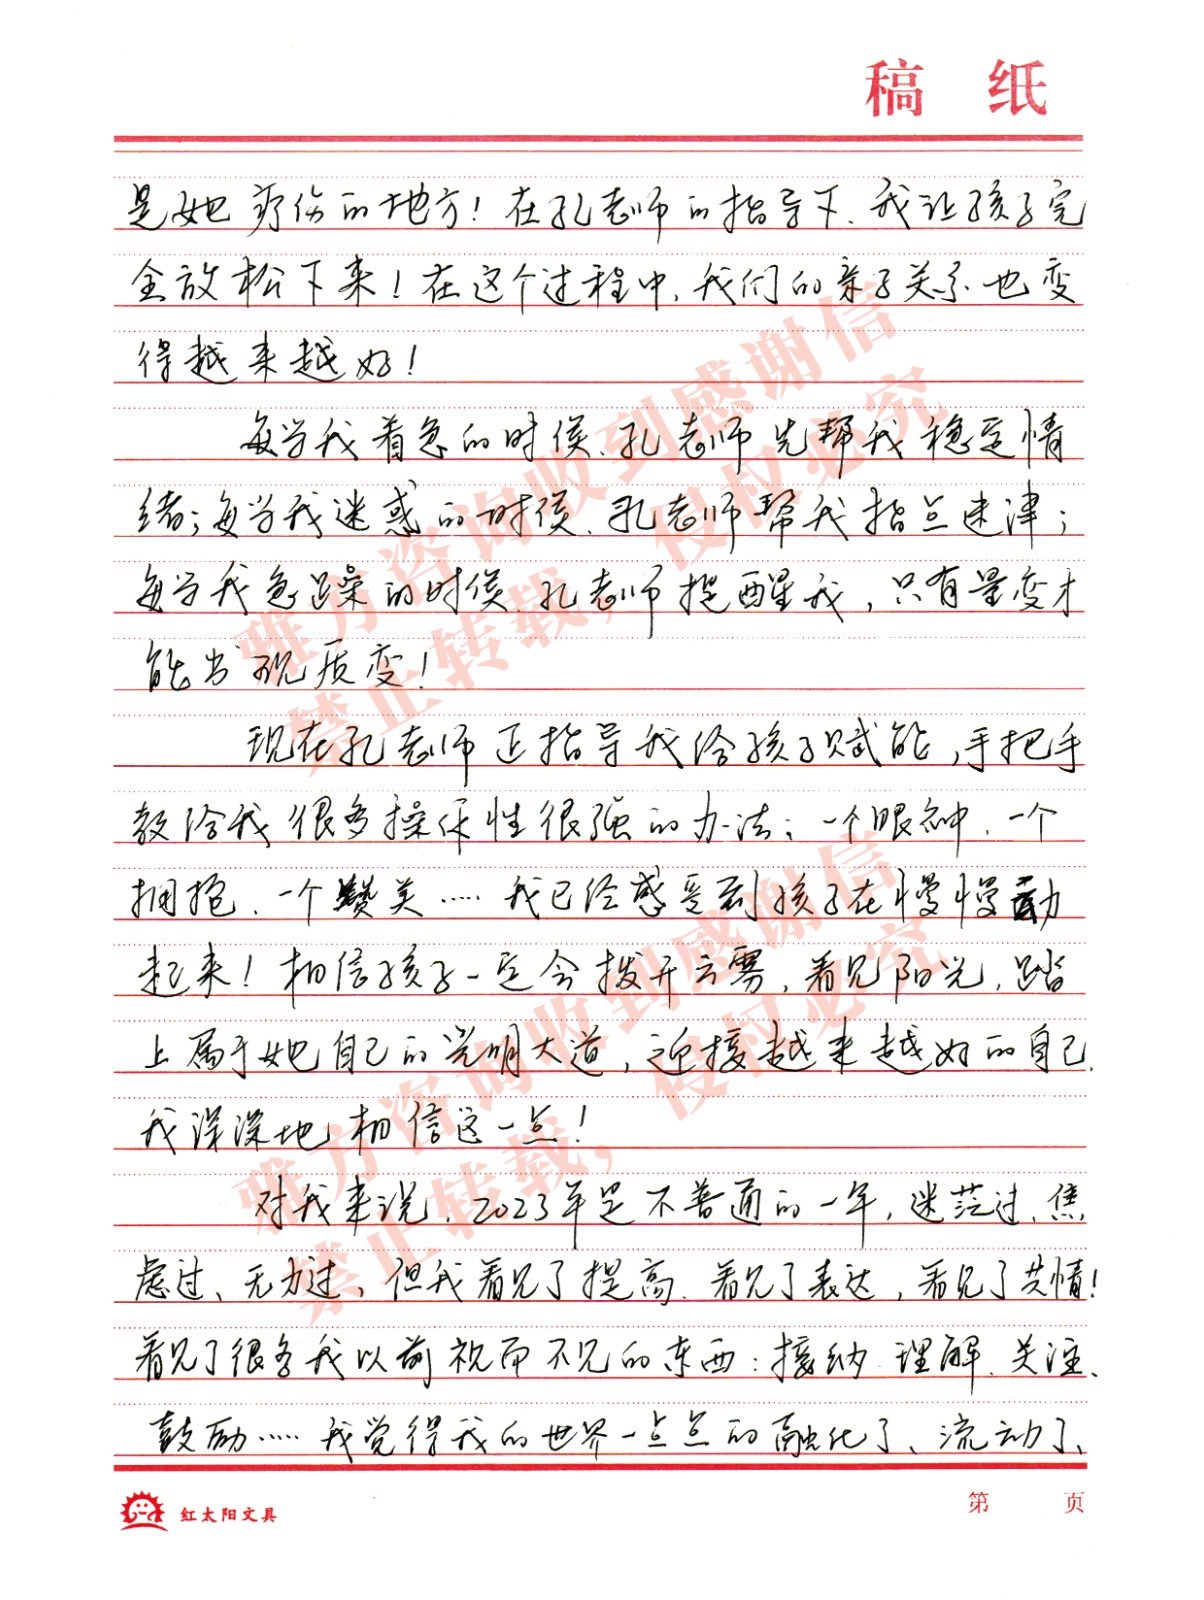 稿 纸
是她疗伤的地方！在孔老师的指导下、我让孩子完
全放松下来！在这个过程中、我们的亲子关系也变
得越来越好！
每当我着急的时候、孔老师先帮我稳定情
绪；每当我迷惑的时候、孔老师帮我指点迷津；
每当我急躁的时候、孔老师提醒我，只有量变才
能出现质变！
现在孔老师正指导我给孩子赋能，手把手
教给我很多操作性很强的办法：一个眼神、一个
拥抱、一个赞美……我已经感受到孩子在慢慢动
起来！相信孩子一定会拨开云雾，看见阳光，踏
上属于她自己的光明大道，迎接越来越好的自己.
我深深地相信这一点！
对我来说，2023年是不普通的一年，迷茫过、焦
虑过、无力过、但我看见了提高、看见了表达，看见了共情！
看见了很多我以前视而不见的东西：接纳、理解、关注、
鼓励……我觉得我的世界一点点的融化了、流动了、
雅方咨询收到感谢信
禁止转载，侵权必究
雅方咨询收到感谢信
禁止转载，侵权必究
红太阳文具
第 页